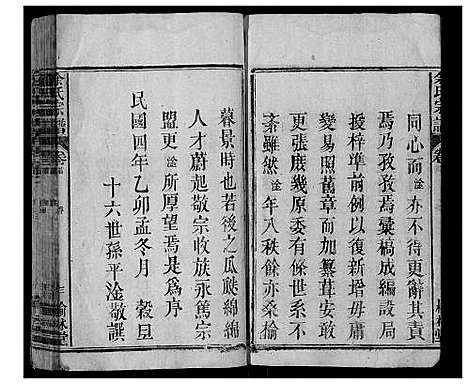 同心而淦亦不得更辭其責
焉乃孜孜焉彙稿成編設局
授梓準前例以復新增毋庸
變易照舊章而加纂葺安敢
更張庶幾原委秩然有條不
紊雖然淦年八秩餘亦桑榆
暮景時也若後之瓜瓞綿綿
人才蔚起敬宗收族永篤宗
盟更淦所厚望焉是為序
民國四年乙卯孟冬月 穀旦
十六世孫平淦敬譔
氏宗譜
卷